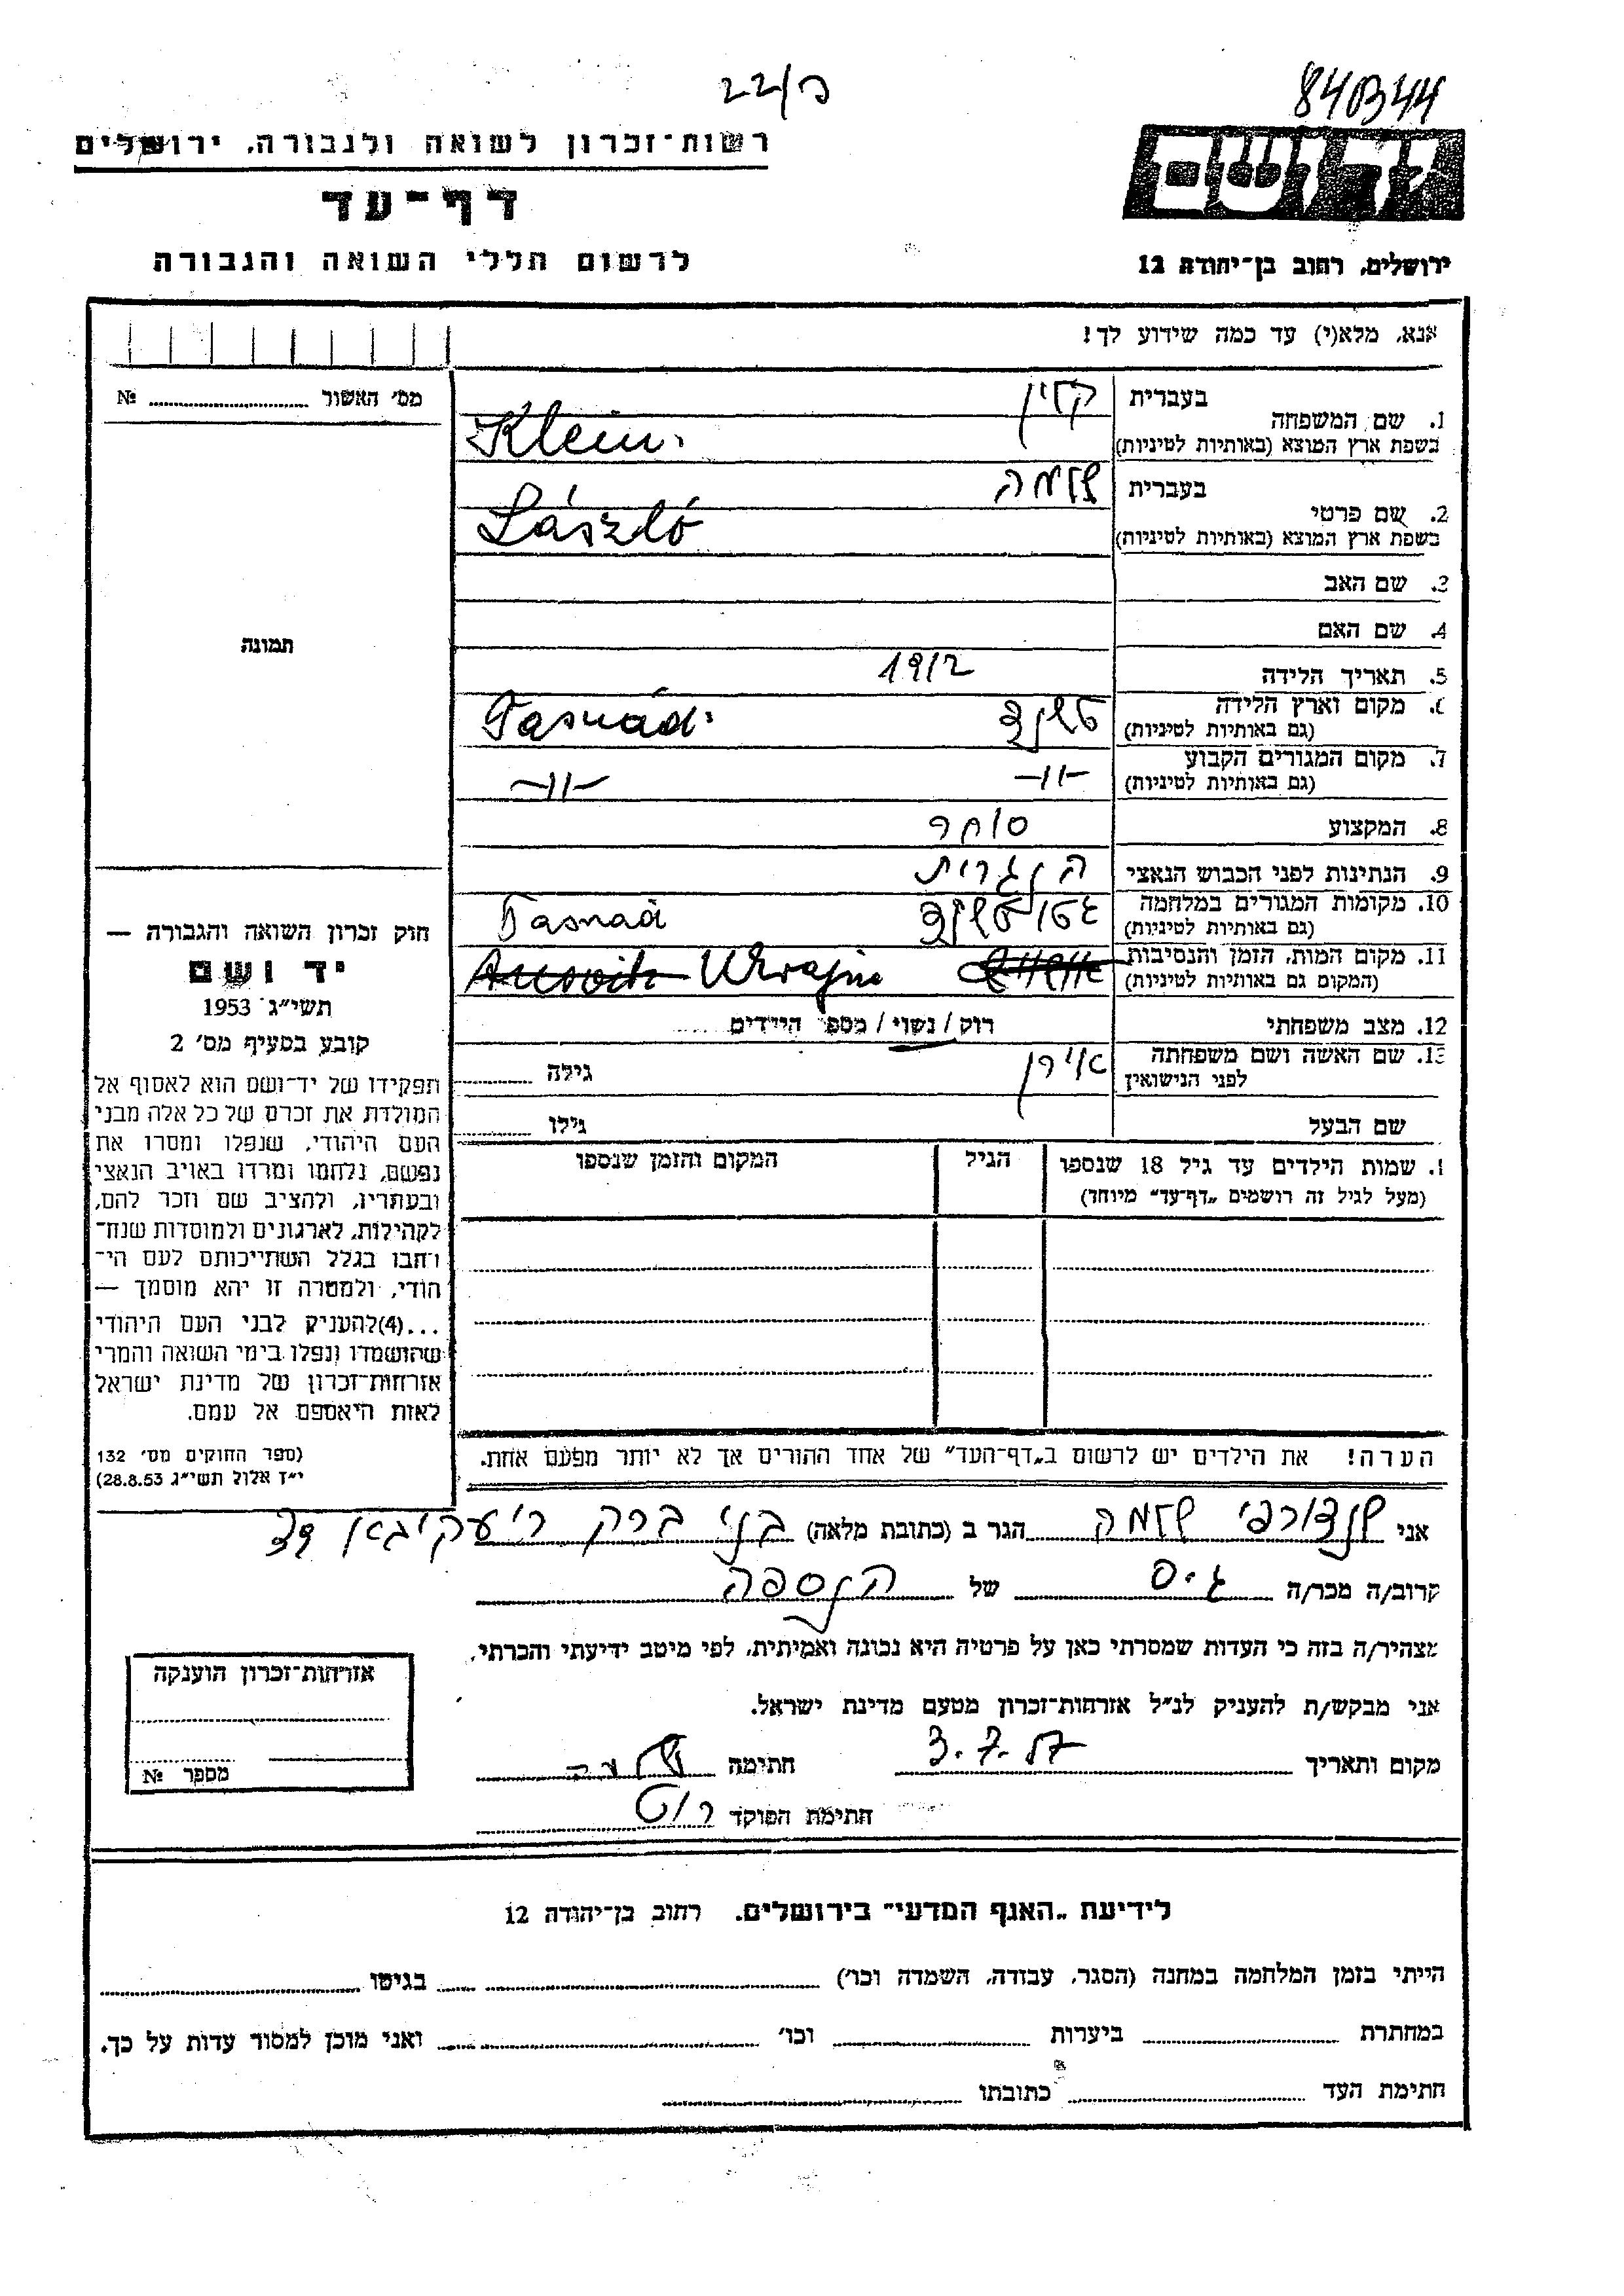 22/כ
84044
רשות־זכרון לשואה ולגבורה, ירושלים
דף־עד
לרשום חללי השואה והגבורה
יד ושם
ירושלים, רחוב בן־יהודה 12
אנא, מלא(י) עד כמה שידוע לך!
מס׳ האשור № 
1. שם המשפחה
בעברית קליין
בשפת ארץ המוצא (באותיות לטיניות) Klein
2. שם פרטי
בעברית שלמה
בשפת ארץ המוצא (באותיות לטיניות) László
3. שם האב
4. שם האם
תמונה
5. תאריך הלידה 1912
6. מקום וארץ הלידה
(גם באותיות לטיניות) טשנד Tasnád
7. מקום המגורים הקבוע
(גם באותיות לטיניות) –״– –״–
8. המקצוע סוחר
9. הנתינות לפני הכבוש הנאצי הונגרית
10. מקומות המגורים במלחמה
(גם באותיות לטיניות) גטו טשנד Tasnad
11. מקום המות, הזמן והנסיבות
(המקום גם באותיות לטיניות) Ukrajne
12. מצב משפחתי רוק / נשוי / מספר הילדים
13. שם האשה ושם משפחתה
לפני הנישואין אירן גילה
שם הבעל גילו
חוק זכרון השואה והגבורה —
יד ושם
תשי״ג 1953
קובע בסעיף מס׳ 2
תפקידו של יד־ושם הוא לאסוף אל
המולדת את זכרם של כל אלה מבני
העם היהודי, שנפלו ומסרו את
נפשם, נלחמו ומרדו באויב הנאצי
ובעוזריו, ולהציב שם וזכר להם,
לקהילות, לארגונים ולמוסדות שנח־
רחבו בגלל השתייכותם לעם הי־
הודי, ולמטרה זו יהא מוסמך —
...(4)להעניק לבני העם היהודי
שהושמדו ונפלו בימי השואה והמרי
אזרחות־זכרון של מדינת ישראל
לאות היאספם אל עמם.
(ספר החוקים מס׳ 132
י״ד אלול תשי״ג 28.8.53)
שמות הילדים עד גיל 18 שנספו
(מעל לגיל זה רושמים „דף־עד״ מיוחד)
הגיל
המקום והזמן שנספו
הערה! את הילדים יש לרשום ב„דף־העד״ של אחד ההורים אך לא יותר מפעם אחת.
אני שנדורפי שלמה הגר ב (כתובת מלאה) בני ברק
קרוב/ה מכר/ה גיס של הנספה
מצהיר/ה בזה כי העדות שמסרתי כאן על פרטיה היא נכונה ואמיתית, לפי מיטב ידיעתי והכרתי.
אני מבקש/ת להעניק לנ״ל אזרחות־זכרון מטעם מדינת ישראל.
מקום ותאריך 3.7.57 חתימה
חתימת הפוקד רוט
אזרחות־זכרון הוענקה
מספר №
לידיעת „האגף המדעי״ בירושלים. רחוב בן־יהודה 12
הייתי בזמן המלחמה במחנה (הסגר, עבודה, השמדה וכו׳) בגיטו
במחתרת ביערות וכו׳ ואני מוכן למסור עדות על כך.
חתימת העד כתובתו